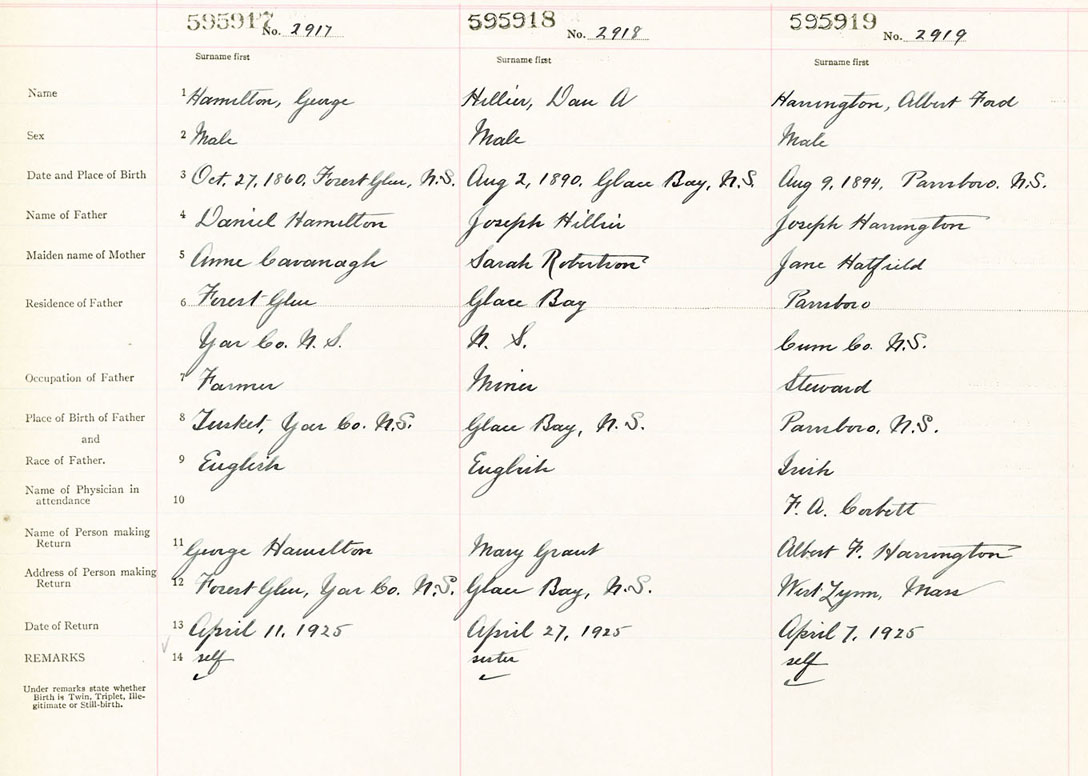 595917 No. 2917 595918 No. 2918 595919 No. 2919
Surname first Surname first Surname first
Name 1 Hamilton, George Hillier, Dan A Harrington, Albert Ford
Sex 2 Male Male Male
Date and Place of Birth 3 Oct. 27, 1860, Forest Glen, N.S. Aug 2, 1890. Glace Bay, N.S. Aug 9, 1894. Parrsboro. N.S.
Name of Father 4 Daniel Hamilton Joseph Hillier Joseph Harrington
Maiden name of Mother 5 Anne Cavanagh Sarah Robertson Jane Hatfield
Residence of Father 6 Forest Glen Glace Bay Parrsboro
Yar Co. N.S. N. S. Cum Co. N.S.
Occupation of Father 7 Farmer Miner Steward
Place of Birth of Father 8 Tusket, Yar Co. N.S. Glace Bay, N.S. Parrsboro, N.S.
and
Race of Father. 9 English English Irish
Name of Physician in
attendance 10 F. A. Corbett
Name of Person making
Return 11 George Hamilton Mary Grant Albert F. Harrington
Address of Person making
Return 12 Forest Glen, Yar Co. N.S. Glace Bay, N.S. West Lynn, Mass
Date of Return 13 April 11, 1925 April 27, 1925 April 7, 1925
REMARKS 14 self sister self
Under remarks state whether
Birth is Twin, Triplet, Ille-
gitimate or Still-birth.